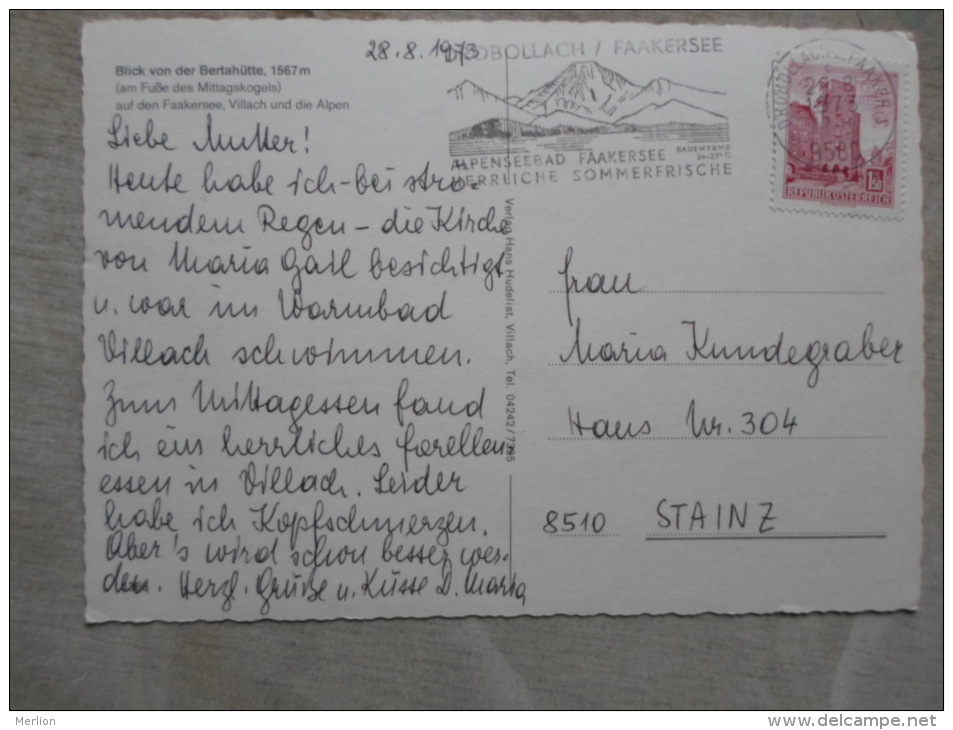 28.8.1973
Blick von der Bertahütte, 1567 m
(am Fuße des Mittagskogels)
auf den Faakersee, Villach und die Alpen
Liebe Mutter!
Heute habe ich - bei strö-
mendem Regen - die Kirche
von Maria Gail besichtigt
u. war im Warmbad
Villach schwimmen.
Zum Mittagessen fand
ich ein herrliches Forellen
essen in Villach. Leider
habe ich Kopfschmerzen.
Aber's wird schon besser wer-
den. Herzl. Grüße u. Küsse D. Maria
DROBOLLACH / FAAKERSEE
BADEWÄRME
24-27°C
ALPENSEEBAD FAAKERSEE
HERRLICHE SOMMERFRISCHE
9580
1.50
REPUBLIK ÖSTERREICH
Verlag Hans Hudelist, Villach, Tel. 04242/
Frau
Maria Kundegraber
Haus Nr. 304
8510 STAINZ
Merlion
http://www.delcampe.net